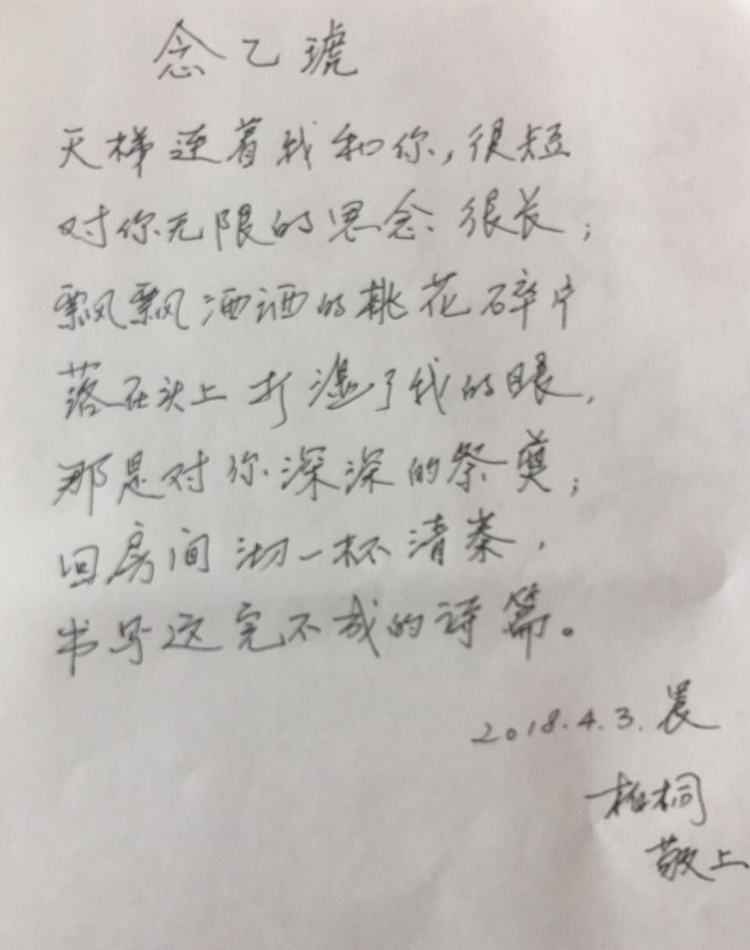 念乙琥
天梯连着我和你,很短
对你无限的思念、很长;
飘飘洒洒的桃花碎片
落在头上打湿了我的眼,
那是对你深深的祭奠;
回房间沏一杯清茶,
书写这完不成的诗篇。
2018.4.3.晨
柏桐
敬上